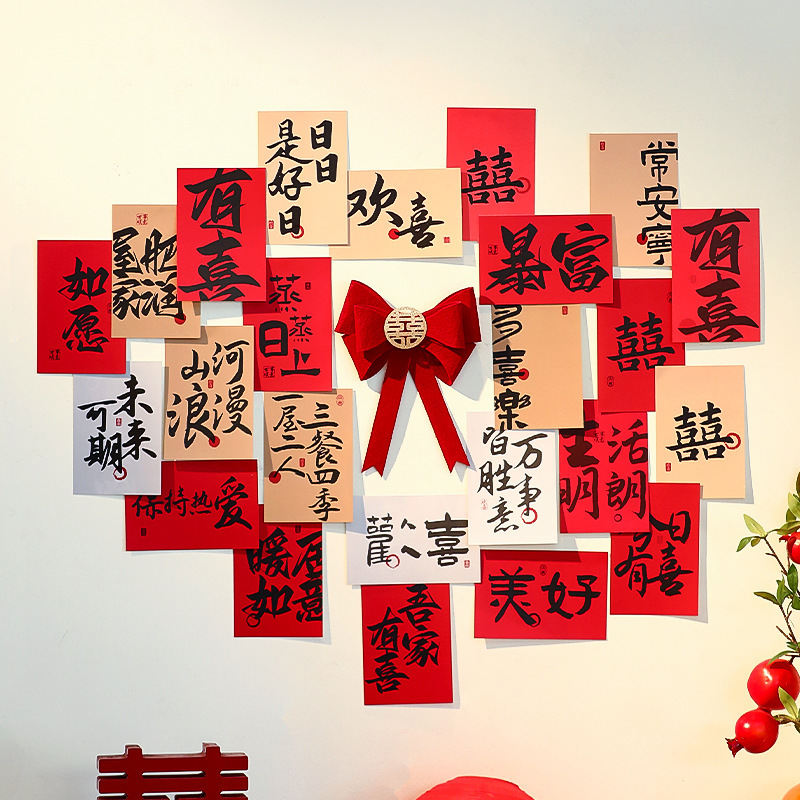 日日
是好日
欢喜
囍
常安寧
有喜
暴富
有喜
如愿
蒸蒸
日上
囍
多喜樂
河漫
山浪
未来
可期
三餐四季
一屋二人
囍
万事
皆胜意
活朗
明
保持热爱
歡喜
日喜
有
暖如
居意
美好
吾家
有喜
囍